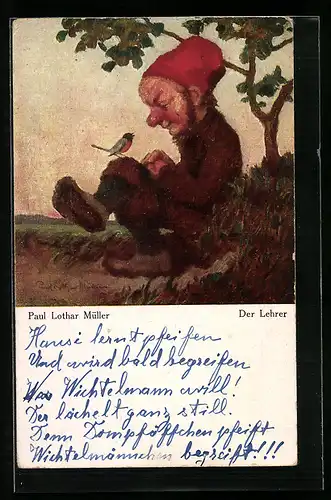 Paul Lothar Müller
Der Lehrer
Hansi lernt pfeifen
Und wird bald begreifen
Was Wichtelmann will!
Der lächelt ganz still.
Denn Dompfäffchen pfeift
Wichtelmännchen begreift!!!